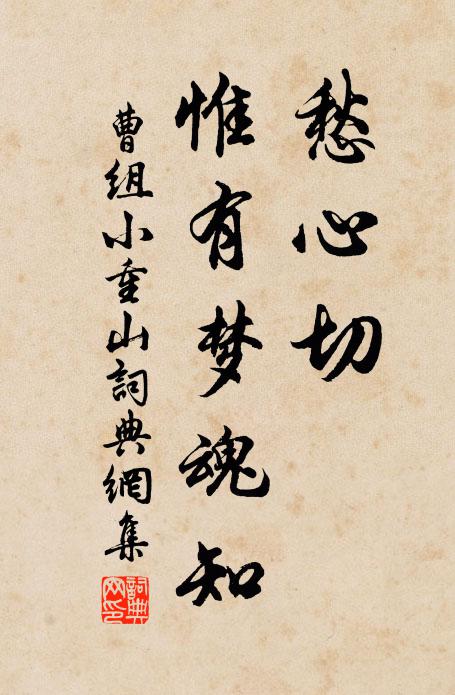 愁心切
惟有梦魂知
曹组小重山詞典網集
詞典网印